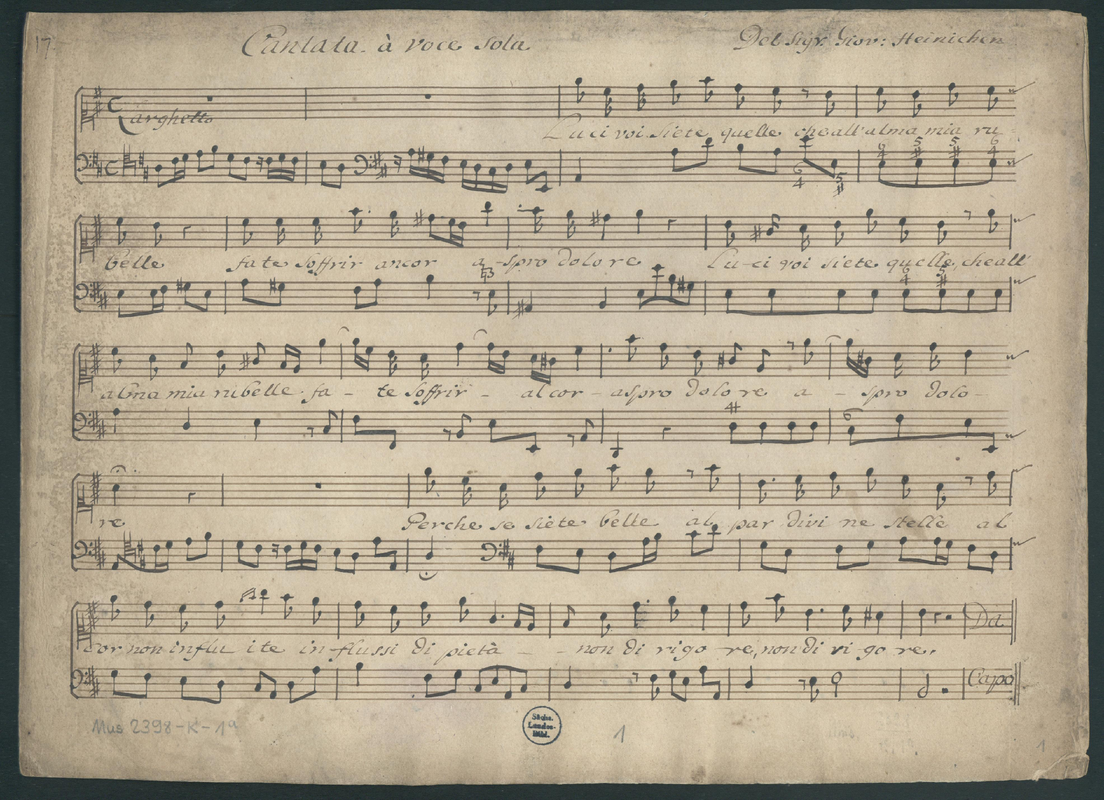 17.
Cantata à voce sola Del Sigr. Giov: Heinichen
Larghetto
Luci voi siete quelle che all' alma mia ru
belle fate soffrir ancor aspro dolore Luci voi siete quelle, che all'
alma mia rubelle fa - te soffrir - al cor - aspro dolore a - spro dolo -
re Perche se siete belle al par divine stelle al
cor non influite influssi di pietà - - non di rigore, non di rigore.
Da
Capo
Mus 2398-K-1a
Sächs.
Landes-
Bibl.
1
1